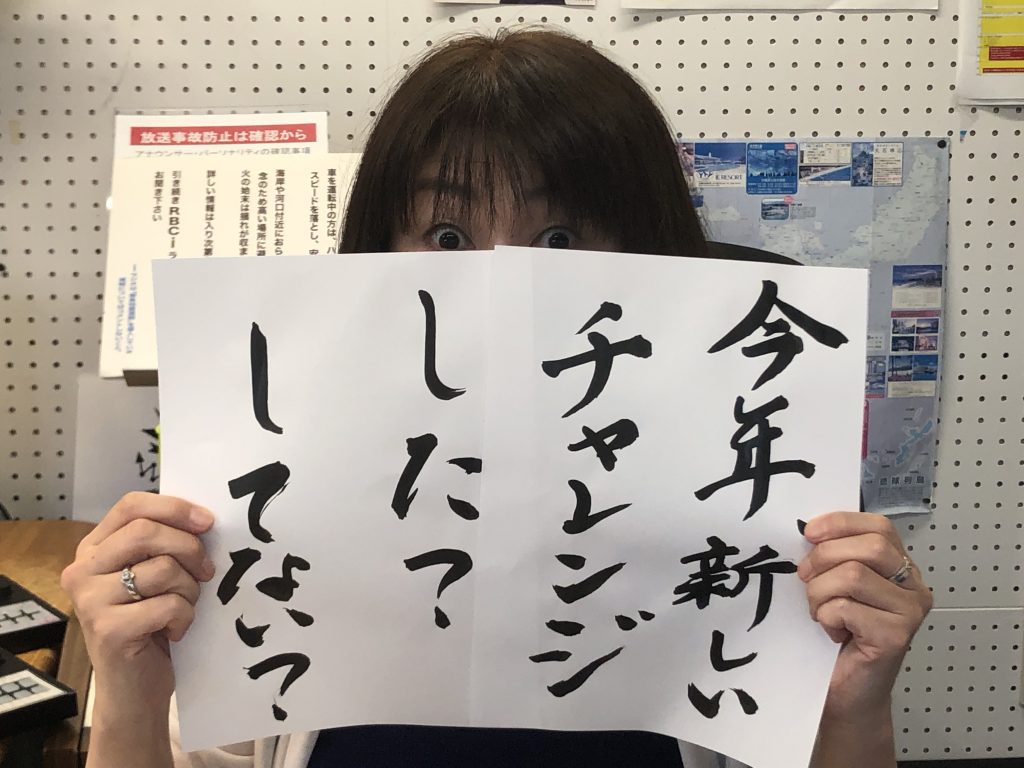 今年新しい
チャレンジ
した?
してない?
放送事故防止は確認から
アナウンサー・パーソナリティの確認事項
車を運転中の方は、ハ
スピードを落とし、安
海岸や河口付近におら
念のため高い場所に避
火の始末は揺れが収ま
詳しい情報は入り次第
引き続きRBCiラ
お聞き下さい
琉球列島